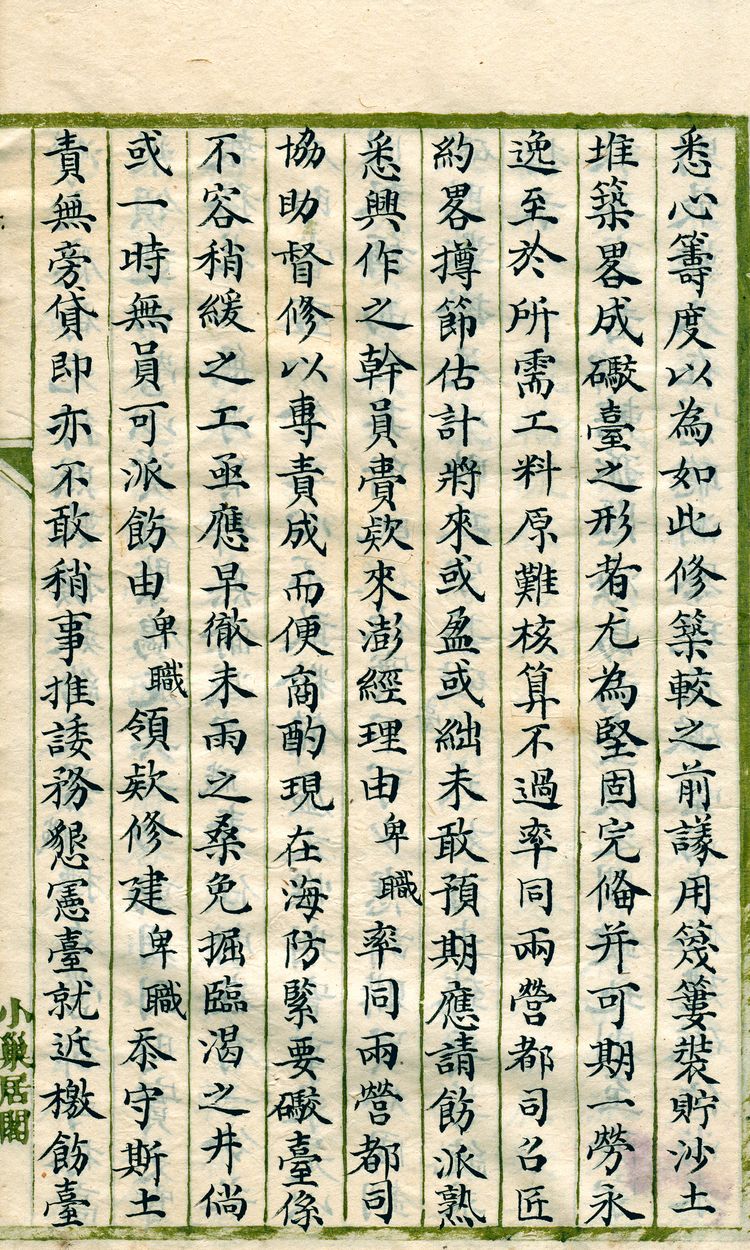 悉心籌度以為如此修築較之前議用篾簍裝貯沙土
堆築畧成礮臺之形者尤為堅固完俻并可期一勞永
逸至於所需工料原難核算不過率同兩營都司召匠
約畧撙節估計將來或盈或絀未敢預期應請飭派熟
悉興作之幹員賫欵來澎經理由卑職率同兩營都司
協助督修以專責成而便商酌現在海防緊要礮臺係
不容稍緩之工亟應早徹未雨之桑免掘臨渴之井倘
或一時無員可派飭由卑職領欵修建卑職忝守斯土
責無旁貸即亦不敢稍事推諉務懇憲臺就近檄飭臺
小巢居閣